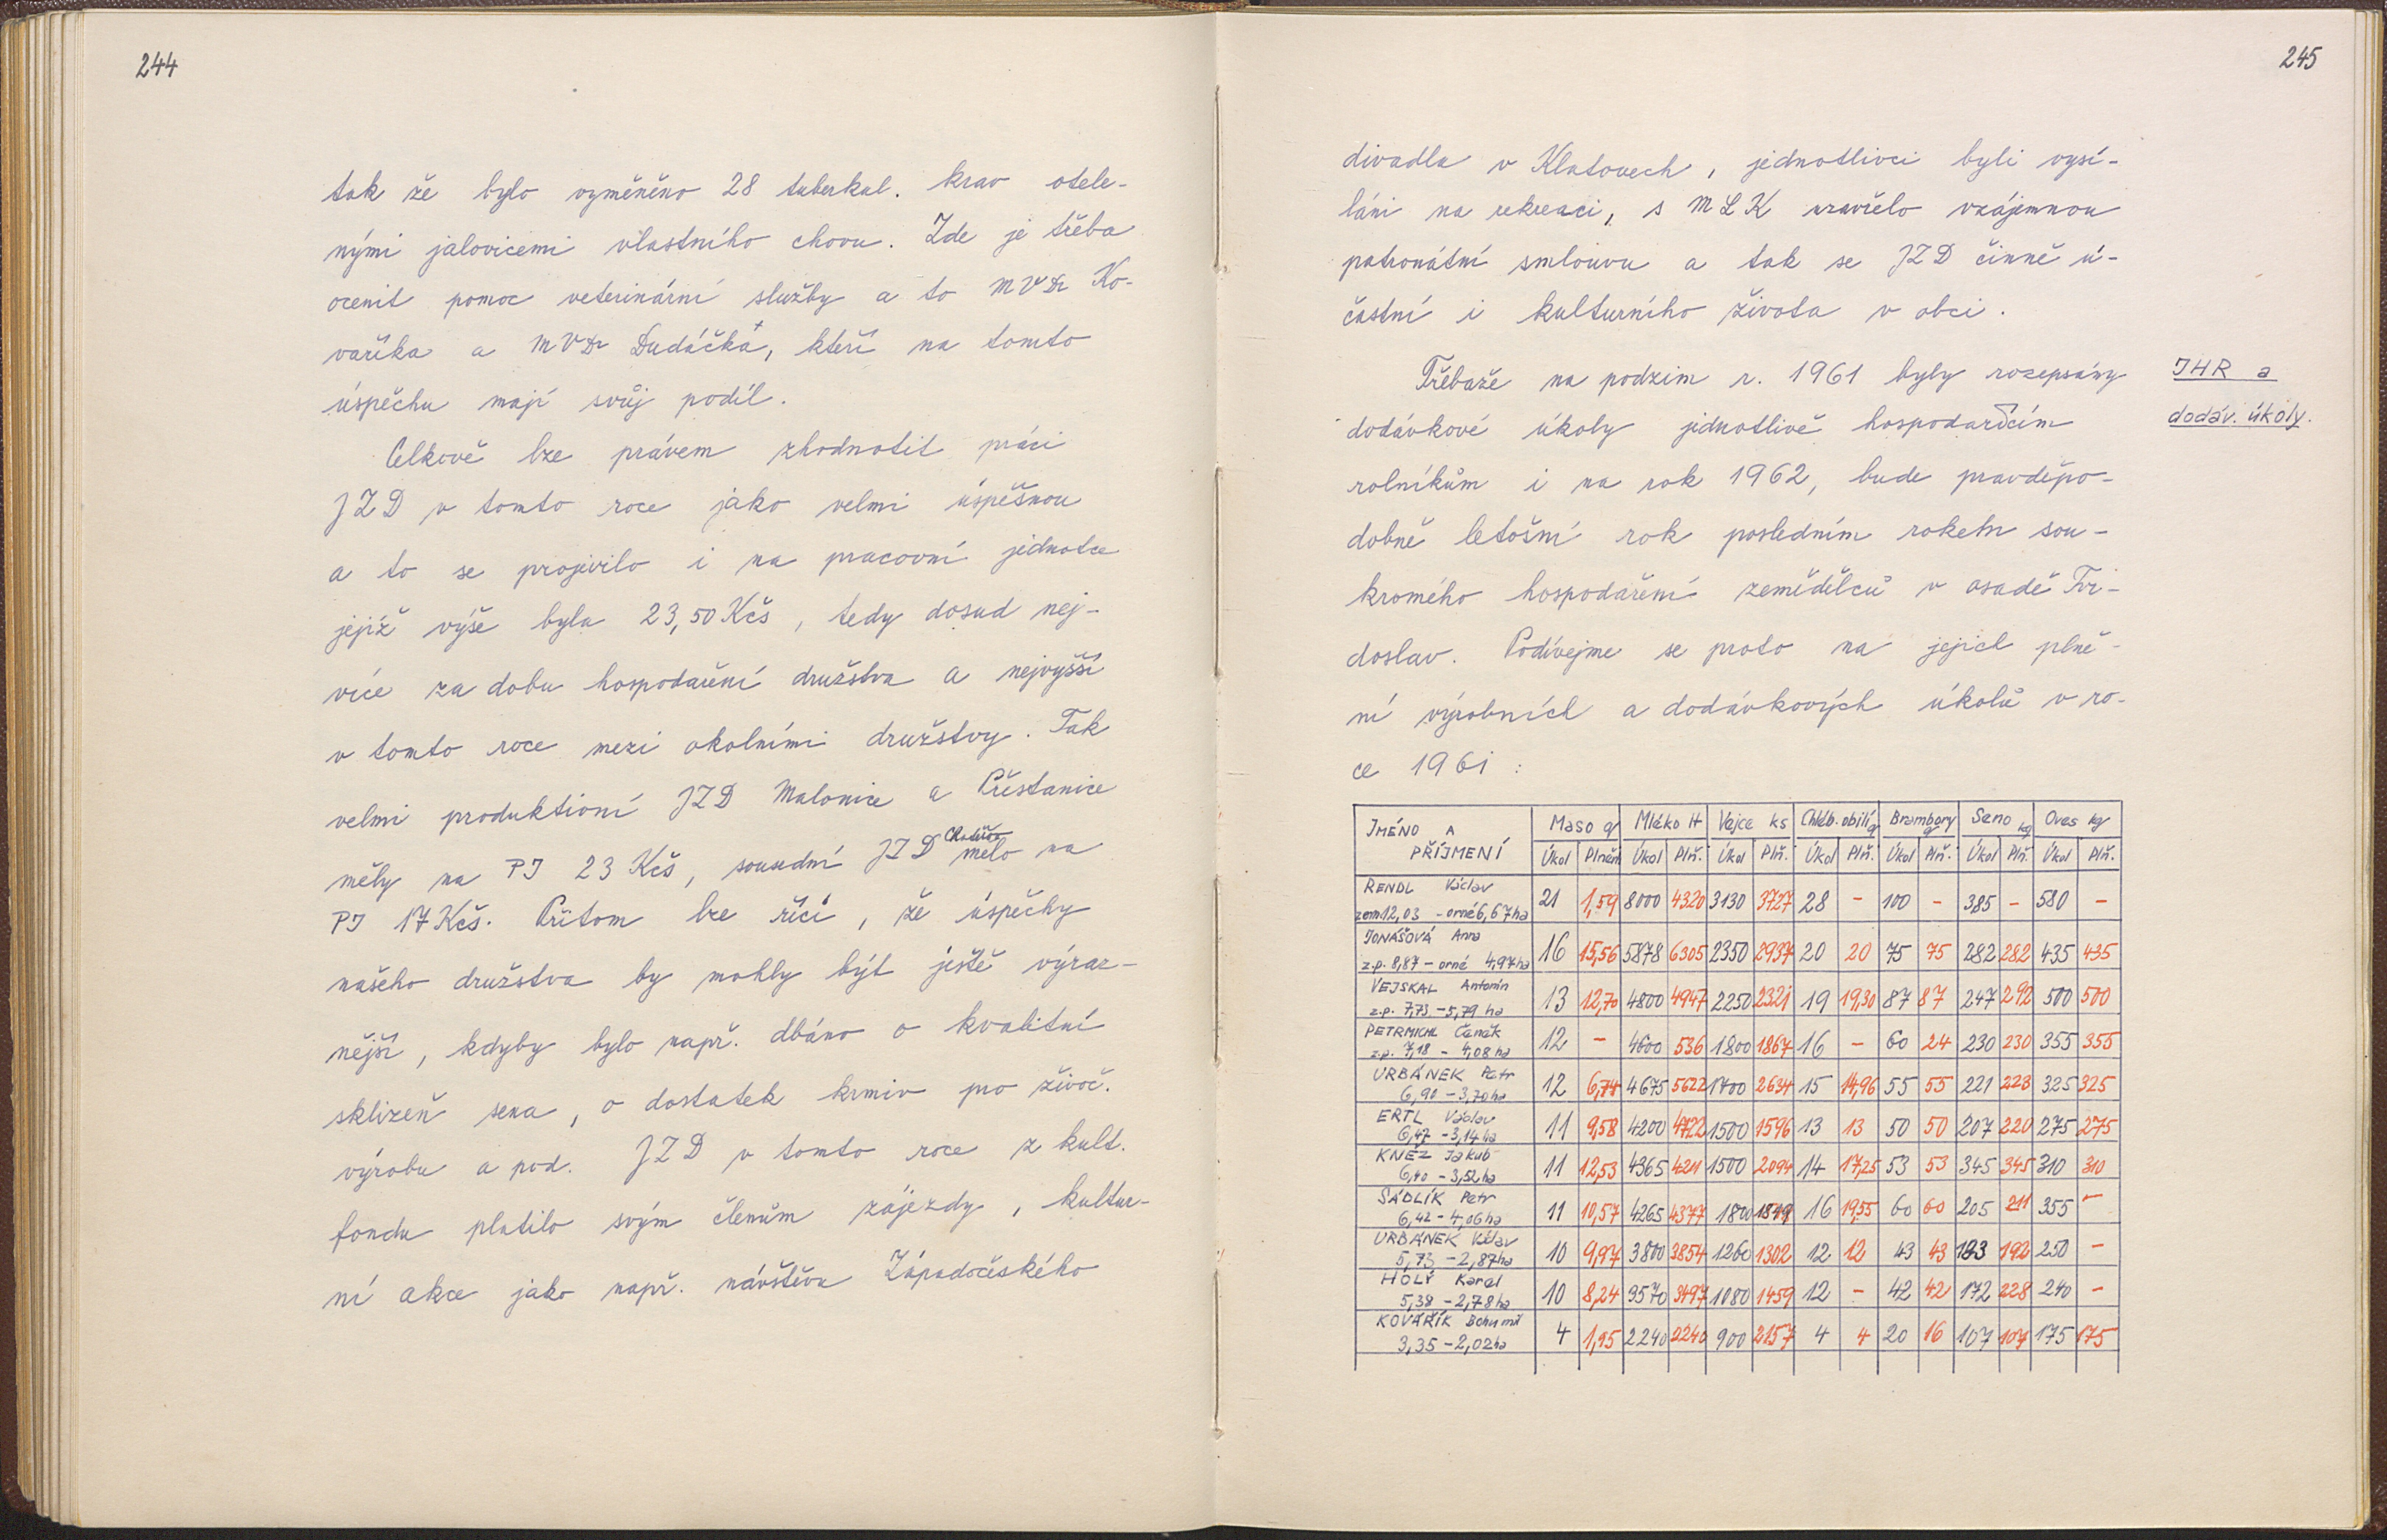 244
tak že bylo vyměněno 28 tuberkul. krav otele-
nými jalovicemi vlastního chovu. Zde je třeba
ocenit pomoc veterinární služby a to MVDr Ko-
vaříka a MVDr Dudáčka, kteří na tomto
úspěchu mají svůj podíl.
Celkově lze právem zhodnotit práci
JZD v tomto roce jako velmi úspěšnou
a to se projevilo i na pracovní jednotce
jejíž výše byla 23,50 Kčs, tedy dosud nej-
více za dobu hospodaření družstva a nejvyšší
v tomto roce mezi okolními družstvy. Tak
velmi produktivní JZD Malonice a Přestanice
měly na PJ 23 Kčs, sousední JZD mělo na
PJ 17 Kčs. Přitom lze říci, že úspěchy
našeho družstva by mohly být ještě výraz-
nější, kdyby bylo např. dbáno o kvalitní
sklizeň sena, o dostatek krmiv pro živoč.
výrobu a pod. JZD v tomto roce z kult.
fondu platilo svým členům zájezdy, kultur-
ní akce jako např. návštěvu Západočeského
245
divadla v Klatovech, jednotlivci byli vysí-
láni na rekreaci, s MLK uzavřelo vzájemnou
patronátní smlouvu a tak se JZD činně ú-
častní i kulturního života v obci.
JHR a
dodáv. úkoly.
Třebaže na podzim r. 1961 byly rozepsány
dodávkové úkoly jednotlivě hospodařícím
rolníkům i na rok 1962, bude pravděpo-
dobně letošní rok posledním rokem sou-
kromého hospodaření zemědělců v osadě Tvr-
doslav. Podívejme se proto na jejich plně-
ní výrobních a dodávkových úkolů v ro-
ce 1961:
JMÉNO A Maso q Mléko lt Vejce ks Chléb. obilí q Brambory q Seno kg Oves kg
PŘÍJMENÍ Úkol Plněn Úkol Plň. Úkol Plň. Úkol Plň. Úkol Plň. Úkol Plň. Úkol Plň.
RENDL Václav
zem 12,03 - orné 6,67 ha 21 1,59 8000 4320 3130 3727 28 - 100 - 385 - 580 -
JONÁŠOVÁ Anna
z.p. 8,87 - orné 4,97 ha 16 15,56 5878 6305 2350 2937 20 20 75 75 282 282 435 435
VEJSKAL Antonín
z.p. 7,73 - 5,79 ha 13 12,70 4800 4947 2250 2321 19 19,30 87 87 247 292 500 500
PETRMICHL Čeněk
z.p. 7,18 - 4,08 ha 12 - 4600 536 1800 1867 16 - 60 24 230 230 355 355
URBÁNEK Petr
6,90 - 3,70 ha 12 6,74 4675 5622 2634 15 14,96 55 55 221 223 325 325
ERTL Václav
6,47 - 3,14 ha 11 9,58 4200 4722 1500 1596 13 13 50 50 207 220 275 275
KNEZ Jakub
6,40 - 3,52 ha 11 12,53 4365 4211 1500 2094 14 17,25 53 53 345 345 310 310
SÁDLÍK Petr
6,42 - 4,06 ha 11 10,57 4265 4377 1800 16 19,55 60 60 205 211 355 -
URBÁNEK Václav
5,73 - 2,87 ha 10 9,97 3800 3854 1260 1302 12 12 43 43 192 250 -
HOLÝ Karel
5,38 - 2,78 ha 10 8,24 3570 3497 1080 1459 12 - 42 42 172 228 240 -
KOVÁŘÍK Bohumil
3,35 - 2,02 ha 4 1,95 2240 2240 900 2157 4 4 20 16 107 107 175 175